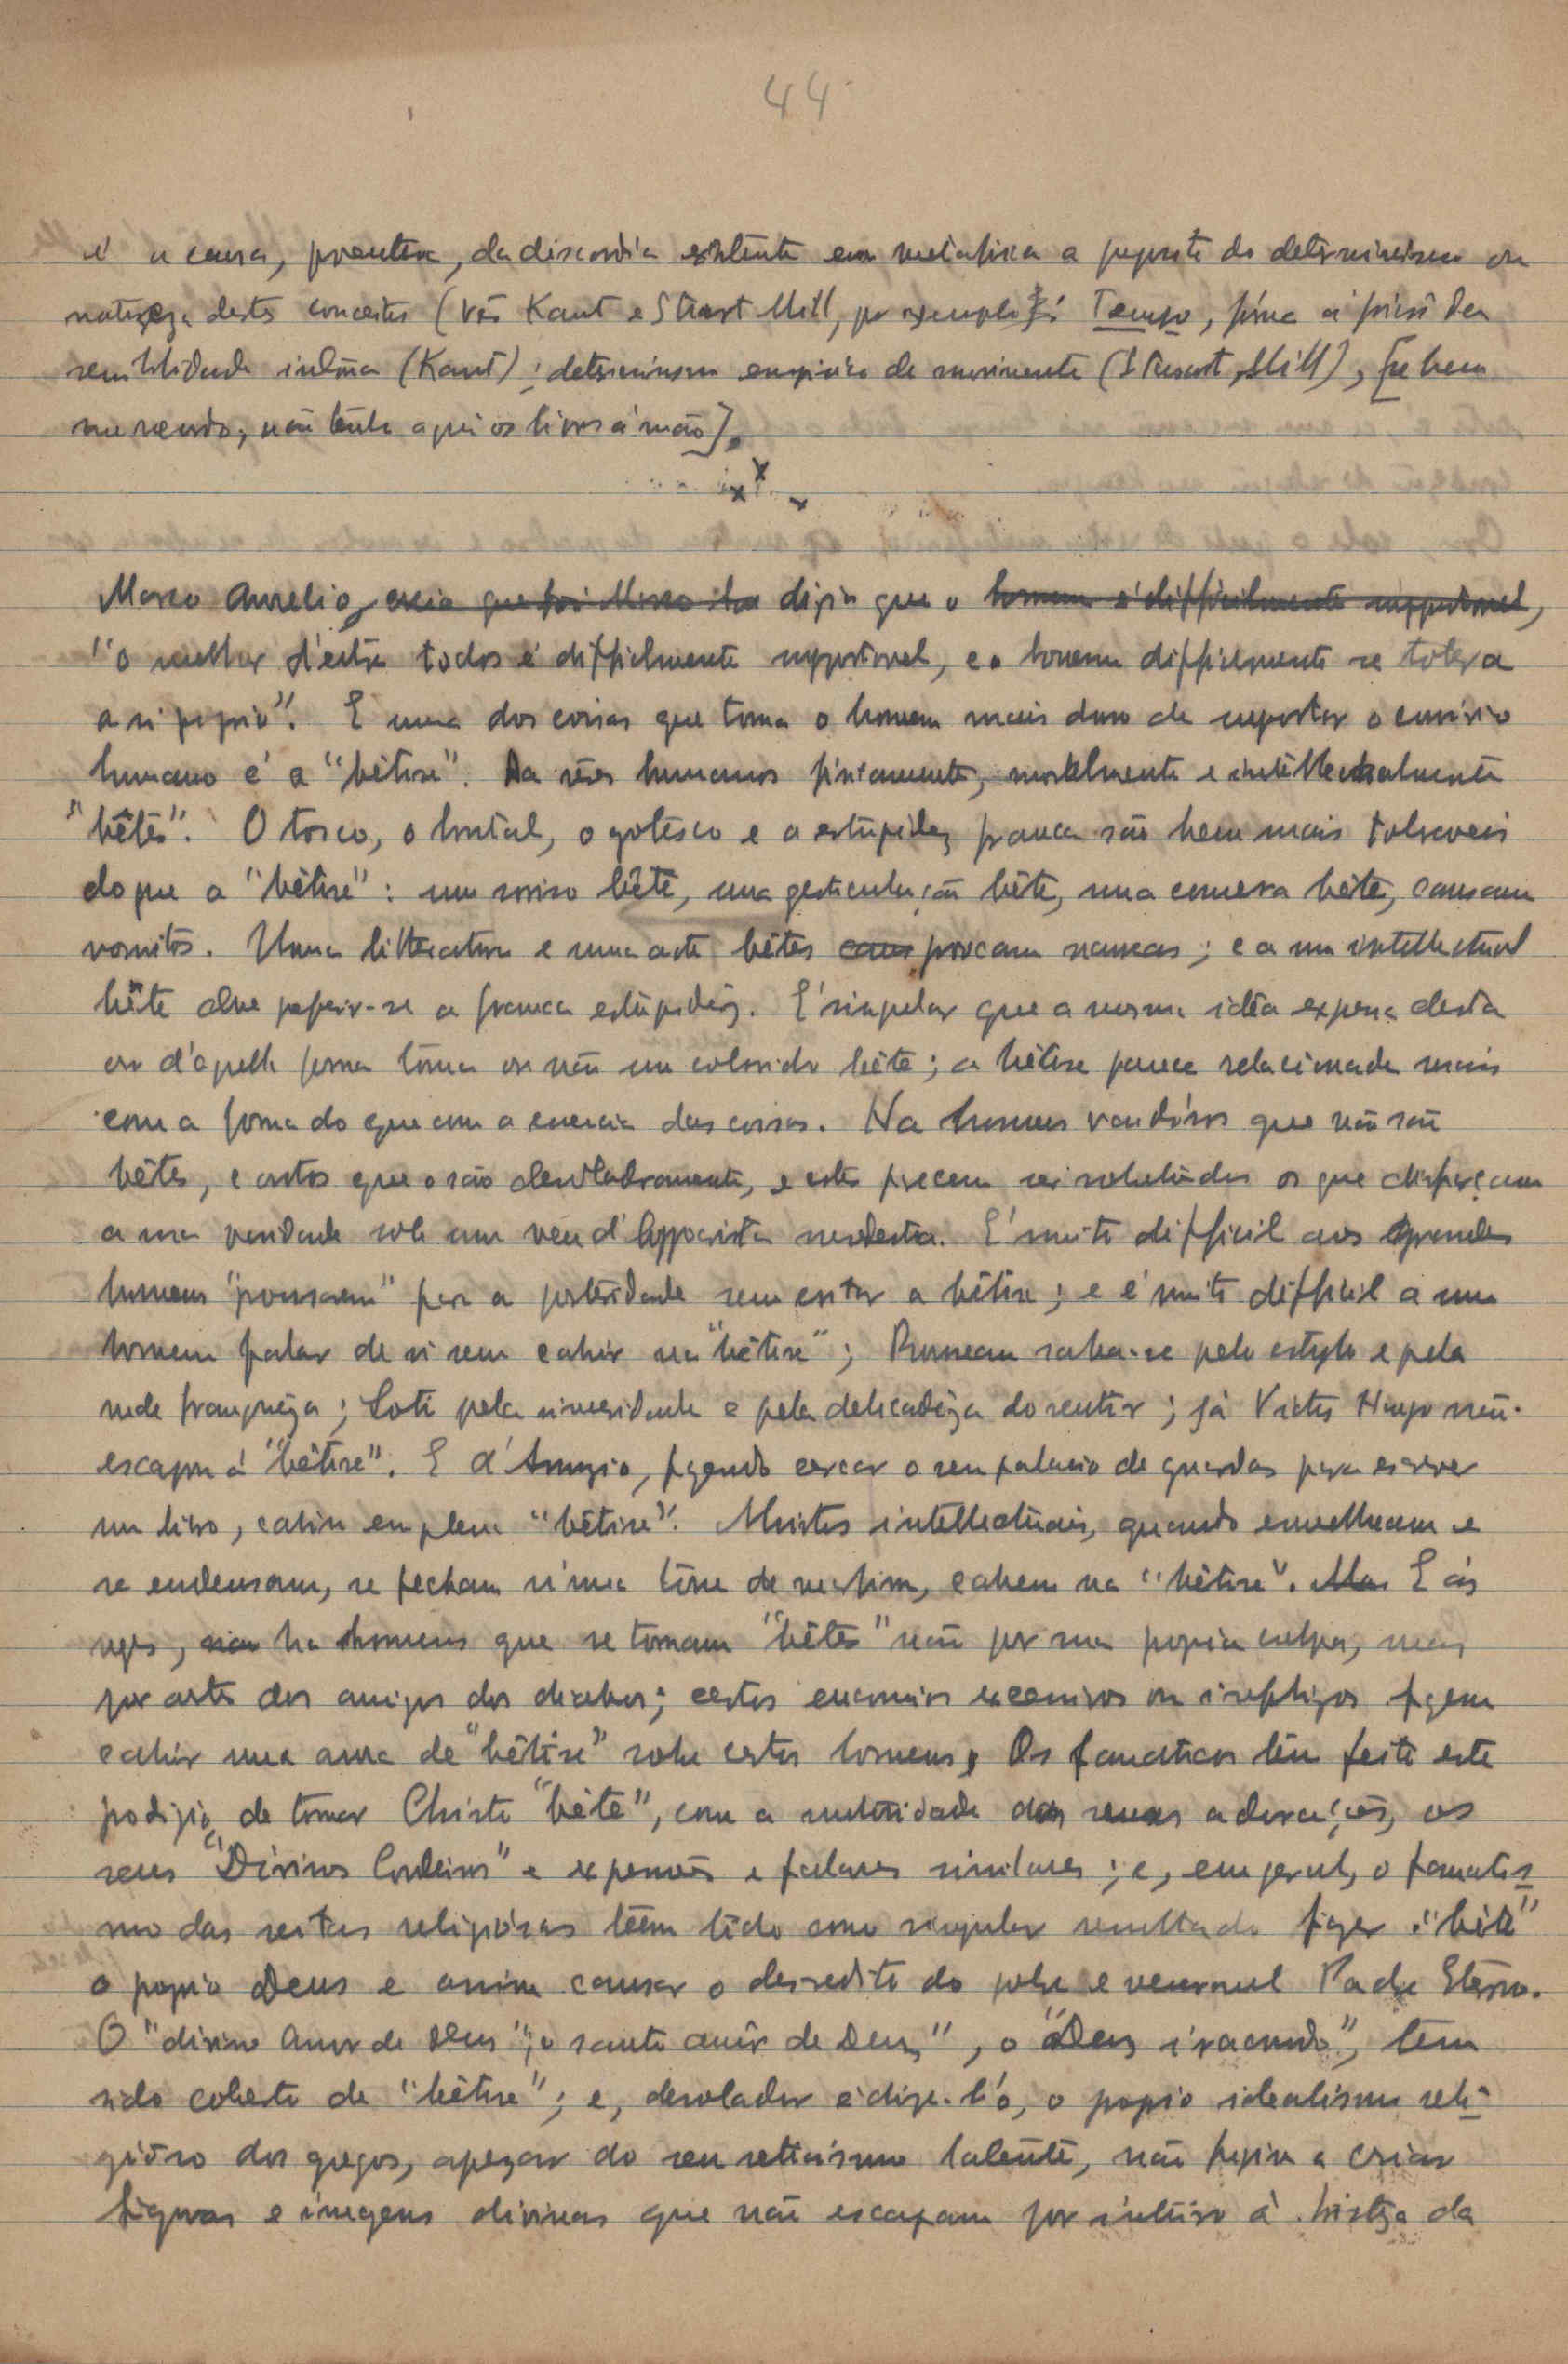 44
é a causa, porventura, da discordia existente em metafisica a proposito do determinismo ou
natureza destes conceitos (vês Kant e Stuart Mill, por exemplo: Tempo, fórma á priori da
sensibilidade intima (Kant); determinismo empirico de movimento (Stuart Mill), [se bem
me recordo; não tenho aqui os livros á mão].
x x x
Marco Aurelio, creio que foi Marco dizia que o homem é difficilmente supportavel,
"o melhor d'entre todos é difficilmente supportavel, e o homem difficilmente se tolera
a si proprio". E uma das coisas que torna o homem mais duro de suportar o convivio
humano é a "bêtise". Ha sêres humanos fisicamente, moralmente e intellectualmente
"bêtes". O tosco, o brutal, o grotesco e a estupidez franca são bem mais toleraveis
do que a "bêtise": um sorriso bête, uma gesticulação bête, uma conversa bête, causam
vomitos. Uma litteratura e uma arte bêtes caus provocam nauseas; e a um intellectual
bête deve preferir-se a franca estupidêz. E' singular que a mesma idéa expressa desta
ou d'aquella forma tóma ou não um colorido bête; a bêtise parece relacionada mais
com a forma do que com a essencia das coisas. Ha homens vaidósos que não são
bêtes, e outros que o são desoladoramente, e estes parecem ser sobretudo os que disfarçam
a sua vaidade sob um véu d'hyppocrita modestia. E' muito difficil aos grandes
homens "pousarem" para a posteridade sem evitar a bêtise; e é muito difficil a um
homem falar de si sem cahir na "bêtise"; Rousseau salva-se pelo estylo e pela
rude franquêza; Loti pela sinceridade e pela delicadêza do sentir; já Victor Hugo não
escapou á "bêtise". E d'Anunzio, fazendo cercar o seu palacio de guardas para escrever
um livro, cahiu em plena "bêtise". Muitos intellectuais, quando envelhecem e
se endeusam, se fecham n'uma tôrre de marfim, cahem na "bêtise". Mas E ás
vezes, não ha homens que se tornam "bêtes" não por sua propria culpa, mas
por artes dos amigos dos diabos; certos encomios excessivos ou infelizes fazem
cahir uma aura de "bêtise" sobre certos homens. Os fanaticos têm feito este
prodigio, de tornar Christo "bête", com a das suas adorações, os
seus "Divinos Cordeiros" e expressões e falares similares; e, em geral, o fanatis-
mo das seitas religiósas têem tido como singular resultado fazer "bête"
o proprio Deus e assim causar o descredito do pobre e veneravel Padre Eterno.
O "divino Amor de Deus", "o santo amôr de Deus", o "Deus iracundo", tem
sido coberto de "bêtise"; e, desolador é dize-l'o, o proprio idealismo reli-
gióso dos gregos, apezar do seu latente, não fugiu a criar
figuras e imagens divinas que não escapam por inteiro á tristeza da